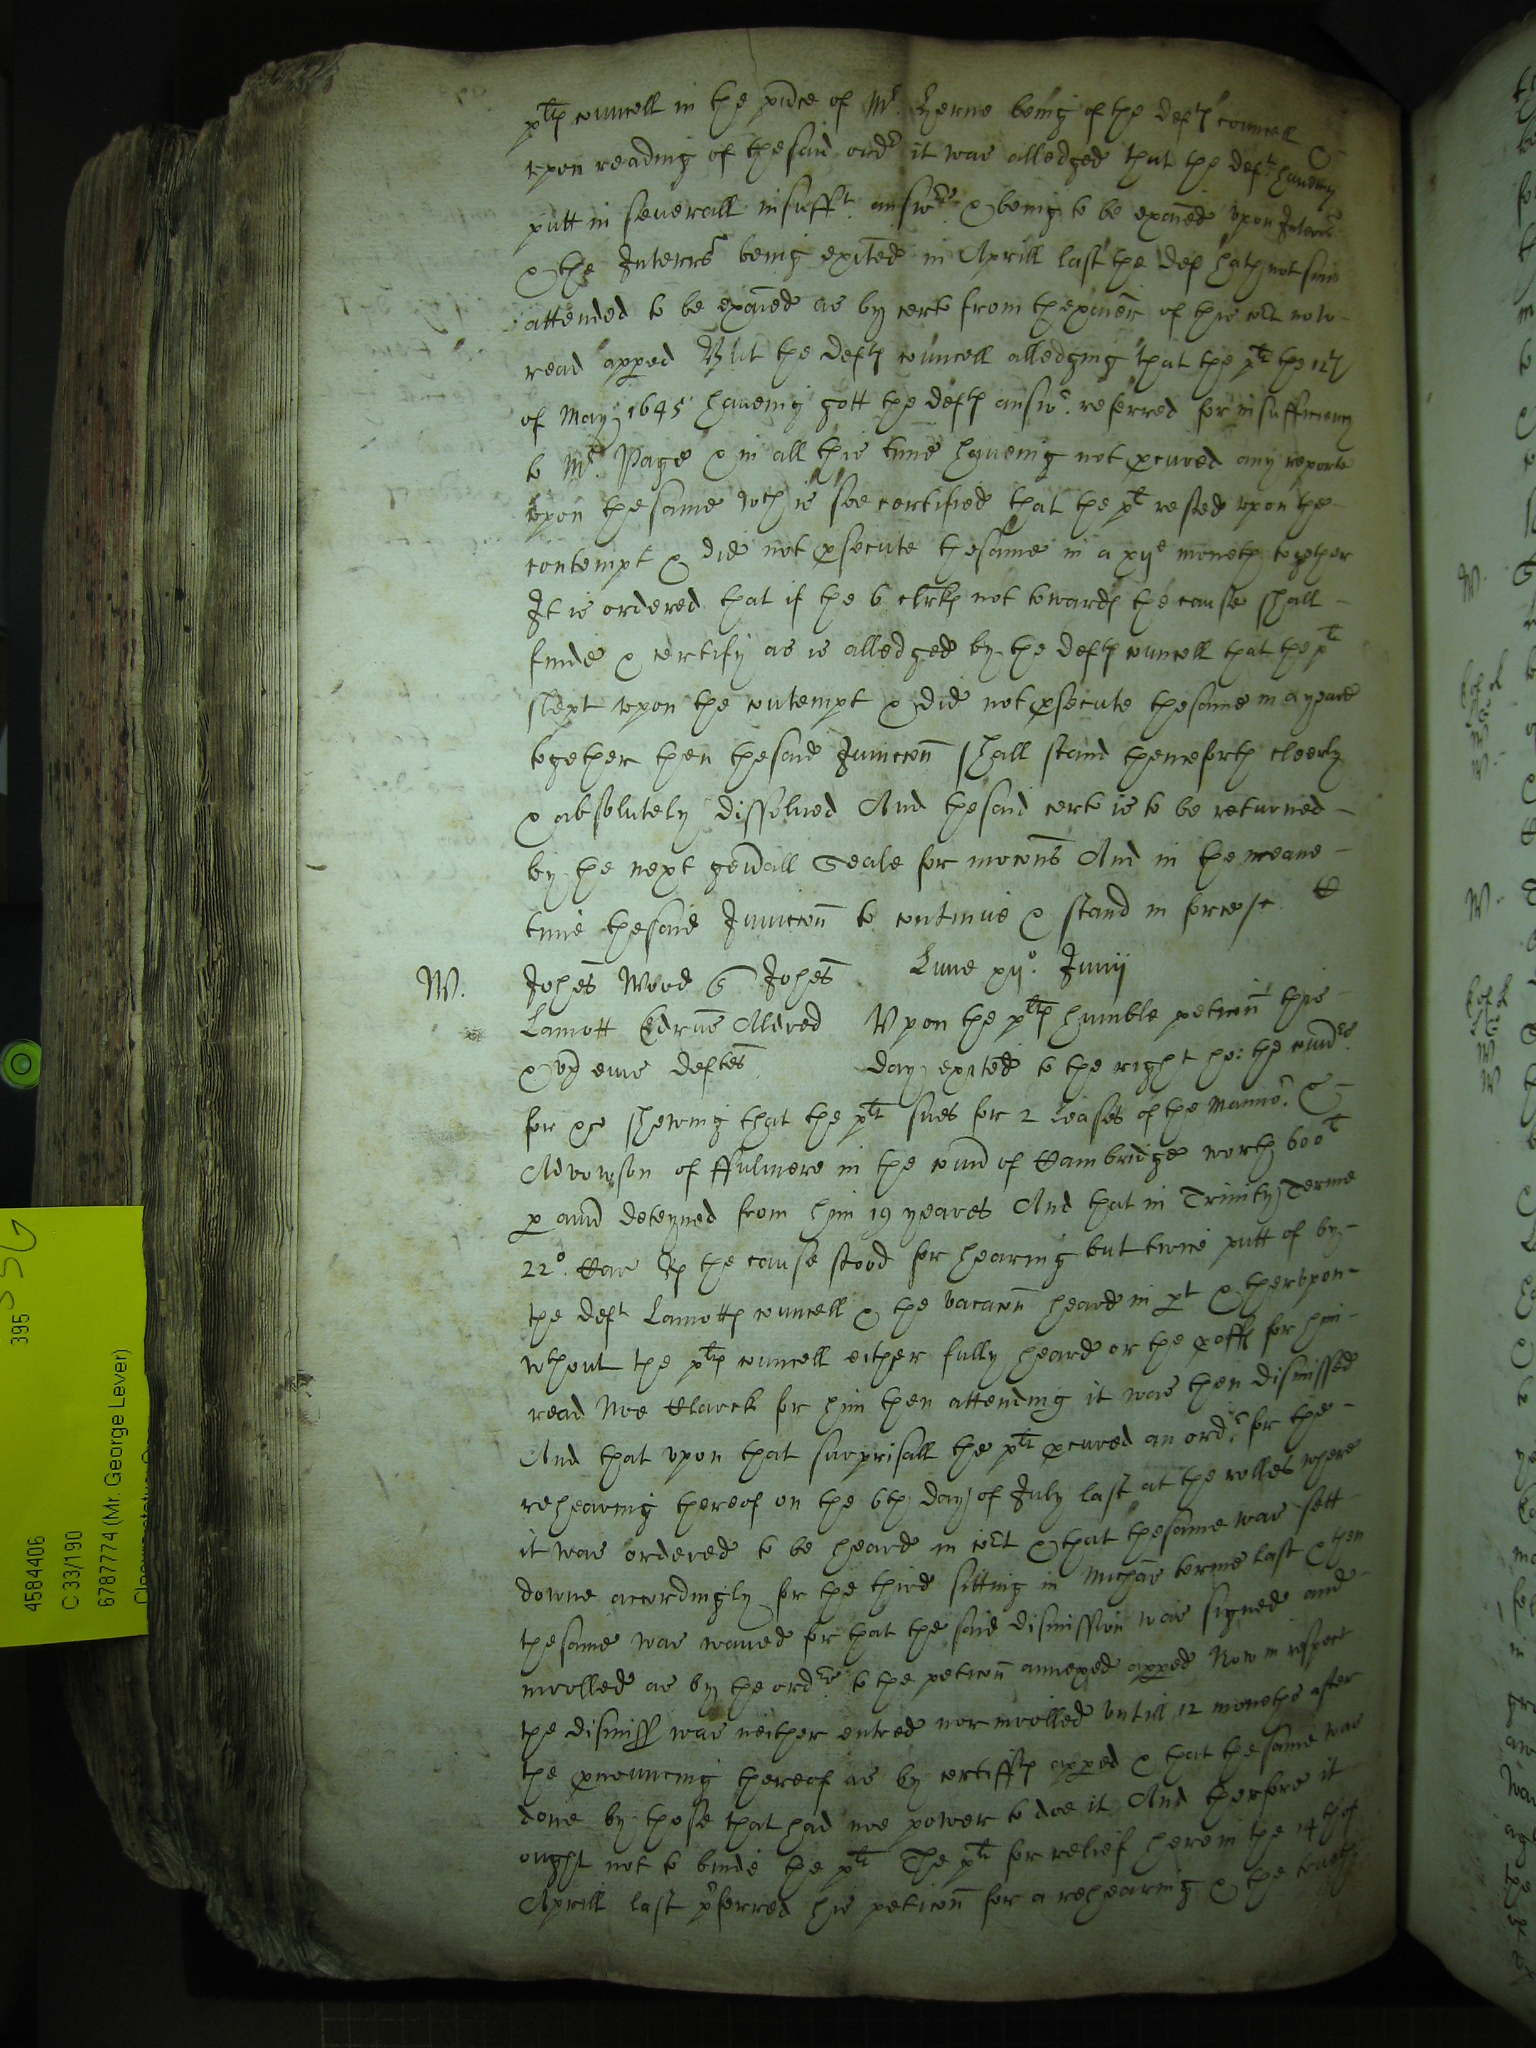 pltfs councell in the pñce of Mr Herne being of the defts councell &
upon reading of the said ordr it was alledged that the deft haveing
putt in severall insufft answrs & being to be exaied upon Interrs
& the Interrs being exited in Aprill last the def hath not since
attended to be exaied as by certe from thexaier of this cort now
read apped But the defts councell alledging that the plt the 12th
of May 1645 haveing gott the defts answr referred for insufficiency
to Mr Page & in all this time haveing not pcured any reporte
upon the same wch is soe certified that the plt rested upon the
contempt & did not psecute the same in a xije moneth together
It is ordered that if the 6 clrks not towards the cause shall
finde & certify as is alledged by the defts councell that the plt
slept upon the contempt & did not psecute the same in a yeare
together then the said Iuniccon shall stand thenceforth cleerly
& absolutely dissolved And the said certe is to be returned
by the next gen̄all Seale for mocons And in the meane
time the said Iuniccon to continue & stand in force
Lune xijo Junij
W. Johes Wood Johes
Lamott Edrus Aldred Upon the plts humble peticon this
& ux eius deftes day exited to the right ho: the comrs
for &c shewing that the plt sues for 2 Leases of the Mannor &
Advowson of ffulmere in the coun̄ of Cambridge worth 600l
p ann̄ deteyned from him 19 yeares And that in Trinity Terme
22o Car Rs the cause stood for hearing but twice putt of by
the deft Lamotts councell & the vacacon heard in pt & therupon
wthout the plts councell either fully heard or the pofes for him
read Noe Clarck for him then attending it was then dismissed
And that upon that surprisall the plt pcured an ordr for the
rehearing thereof on the 6th day of July last at the rolles where
it was ordered to be heard in cort & that the same was sett
downe accordingly for the third sitting in Michas terme last & then
the same was waved for that the said dismission was signed and
inrolled as by the ordrs to the peticon annexed apped Now in respect
the dismiss was neither entred nor inrolled untill 12 moneths after
the pnouncing thereof as by certiffts apped & that the same was
done by those that had noe power to doe it And therfore it
ought not to binde the plt The plt for relief herein the 14th of
Aprill last pferred his peticon for a rehearing & the truth
395
4584406
C 33/190
6787774 (Mr. George Lever)